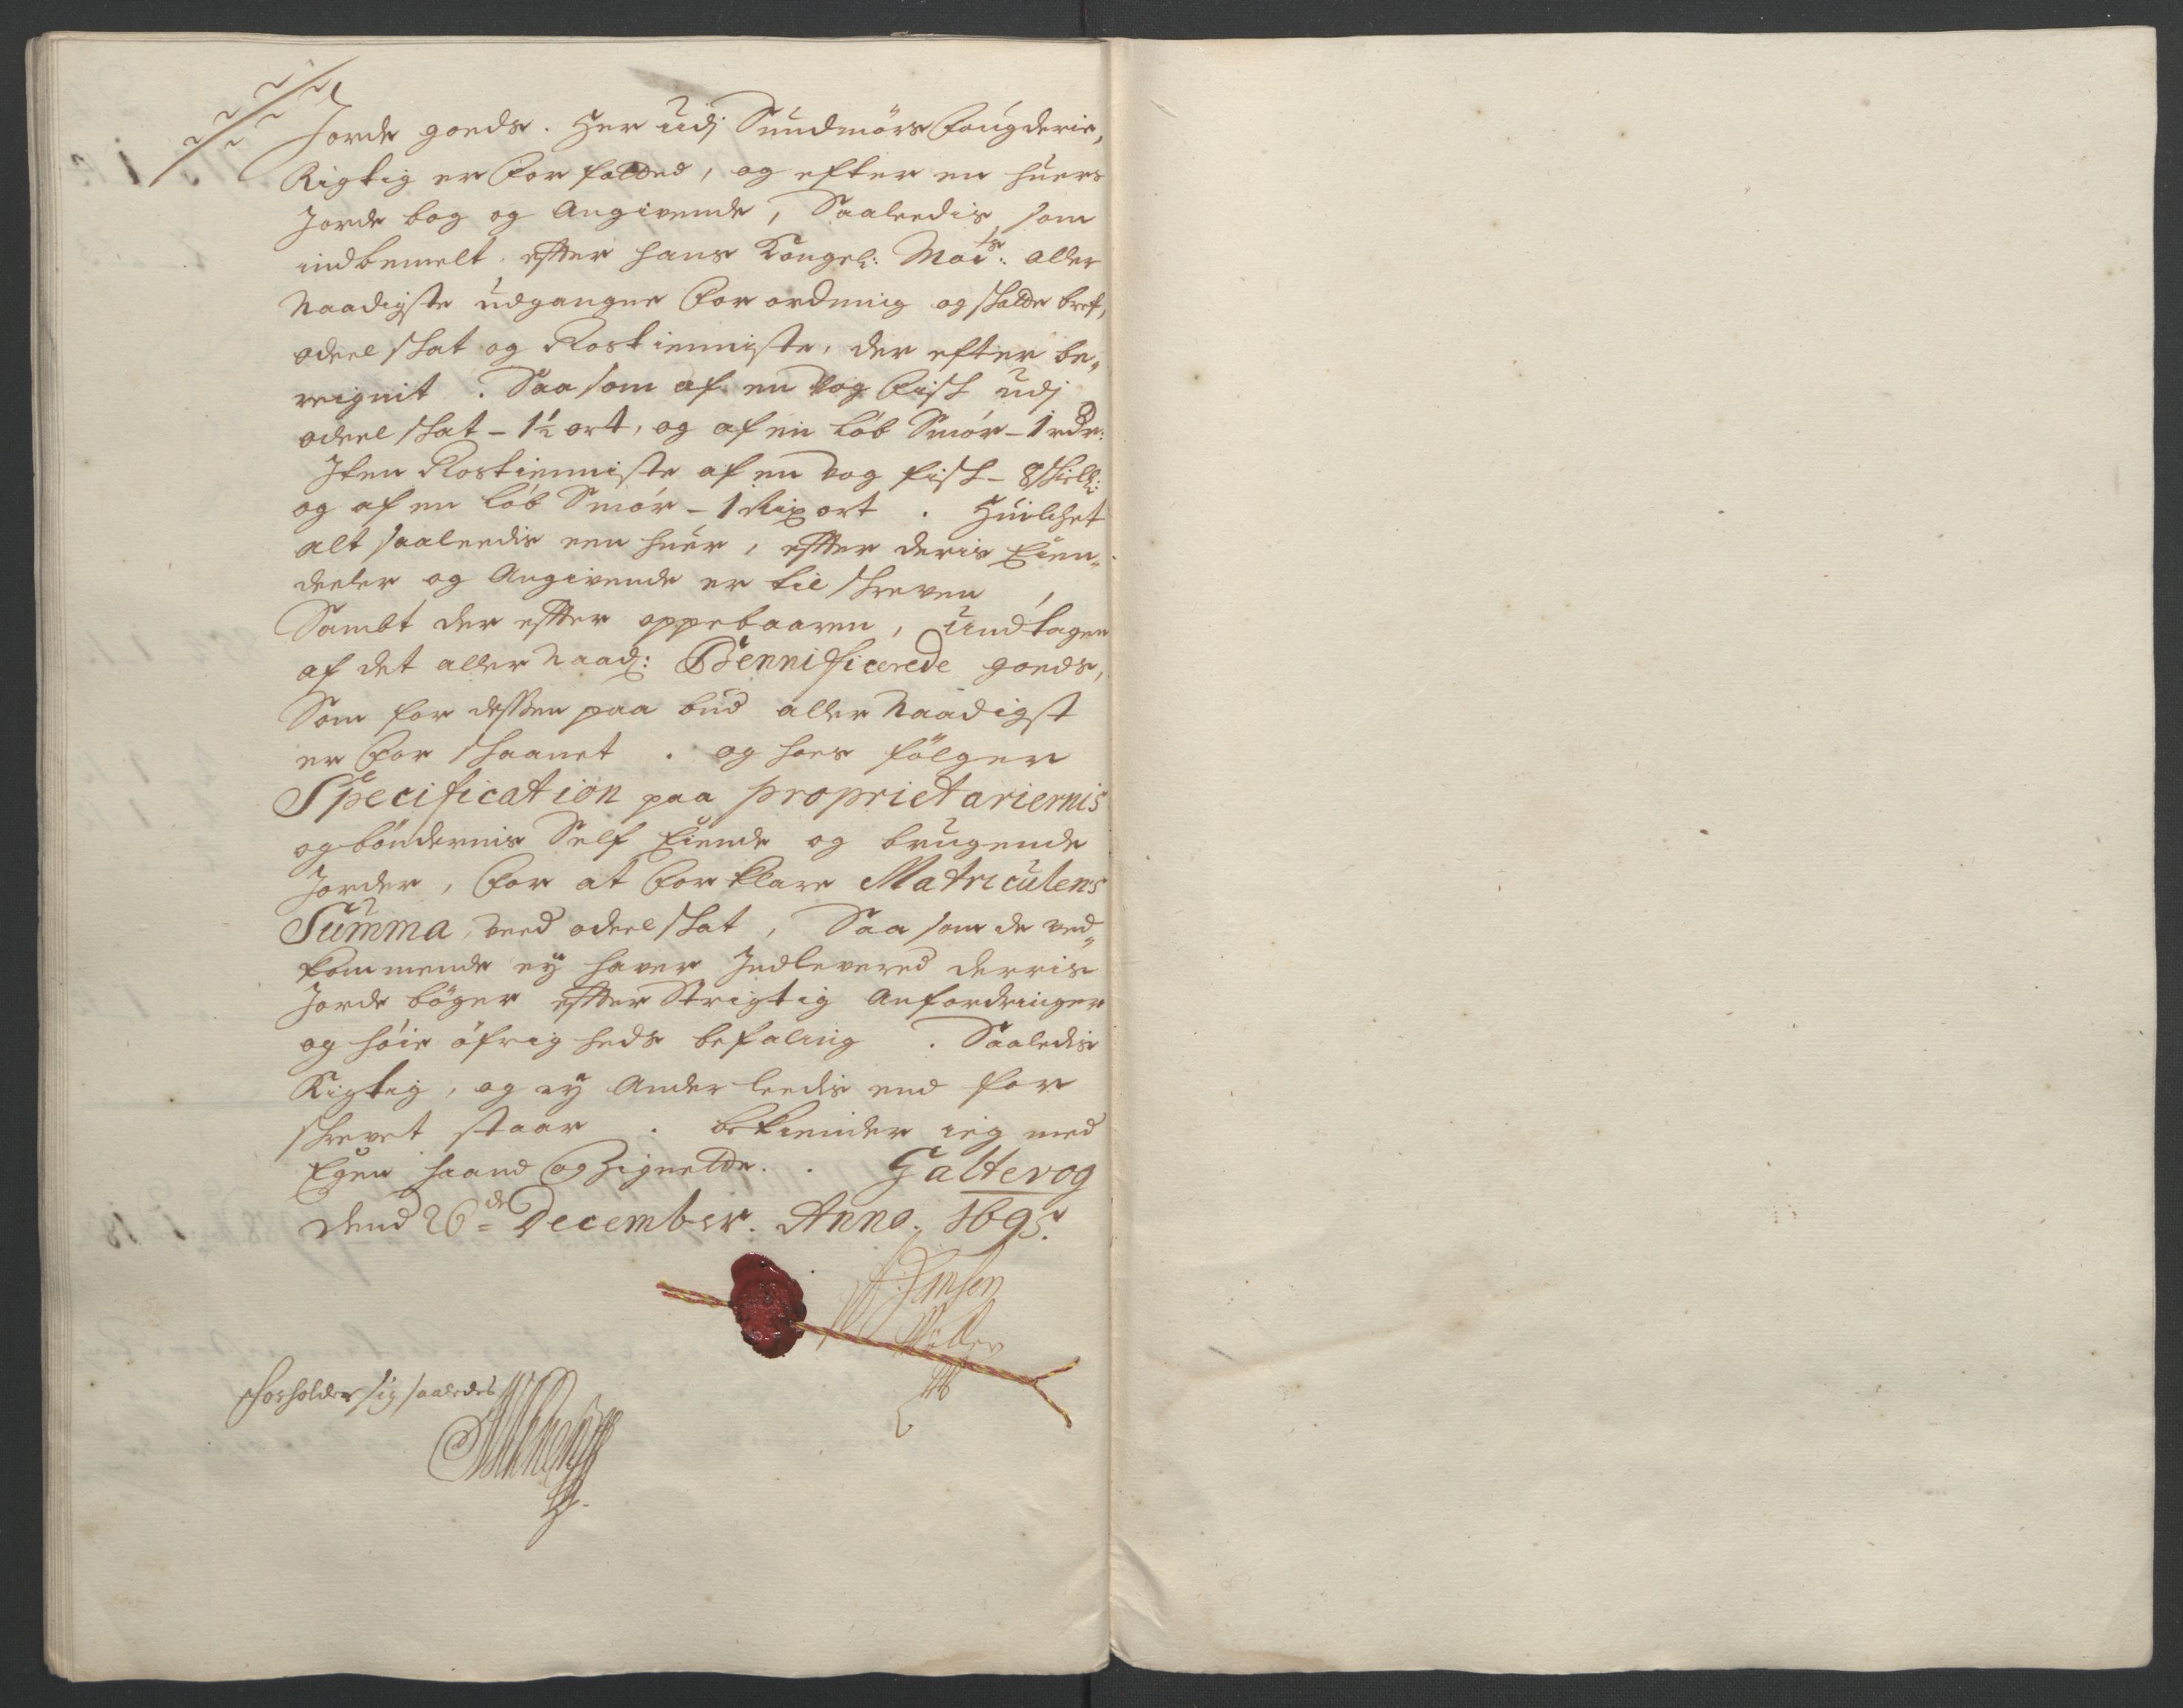 Jorde goeds. Her udj Sundmörs Fougderie,
Rigtig er for fatted, og efter en huers
Jorde bog og Angivende, Saaleedis som
indbemelt, effter hans Kongel: Maits: aller
Naadigste udgangne Forordning og skatte bref,
odeel skat og Rostienniste, der efter be„
reignit. Saa som af en Vog Fisk udj
odeel skat - 1½ ort, og af en Löb Smör - 1 rdr:
Jten Rostienniste af en Vog fisk - 8 skill:
og af en löb Smör - 1 Rix ort. Huilchet
alt saaleedis een huer, effter deris Eien„
deeler og Angivende er til skreven,
Sambt der effter oppebaaren, undtagen
af det aller Naad: Bennificerede goeds,
Som for dessen paa bud aller Naadigst
er for skaanet. og hoes fölger
Specification paa proprietariernis
og böndernis Self Eiende og brugende
Jorder, for at forklare Matriculens
Summa, ved odeel skat, Saa som de ved„
kommende ey haver Indlevered derris
Jorde böger effter Strigtig Anfordringer
og höie öfrigheds befaling. Saaledis
Rigtig, og ey Anderleedis end for
skrevet staar. bekiender ieg med
Egen haand og Zignette. Galtevog
dend 26de December. Anno. 1695.
Jensen
Möller
forholder sig saaledes